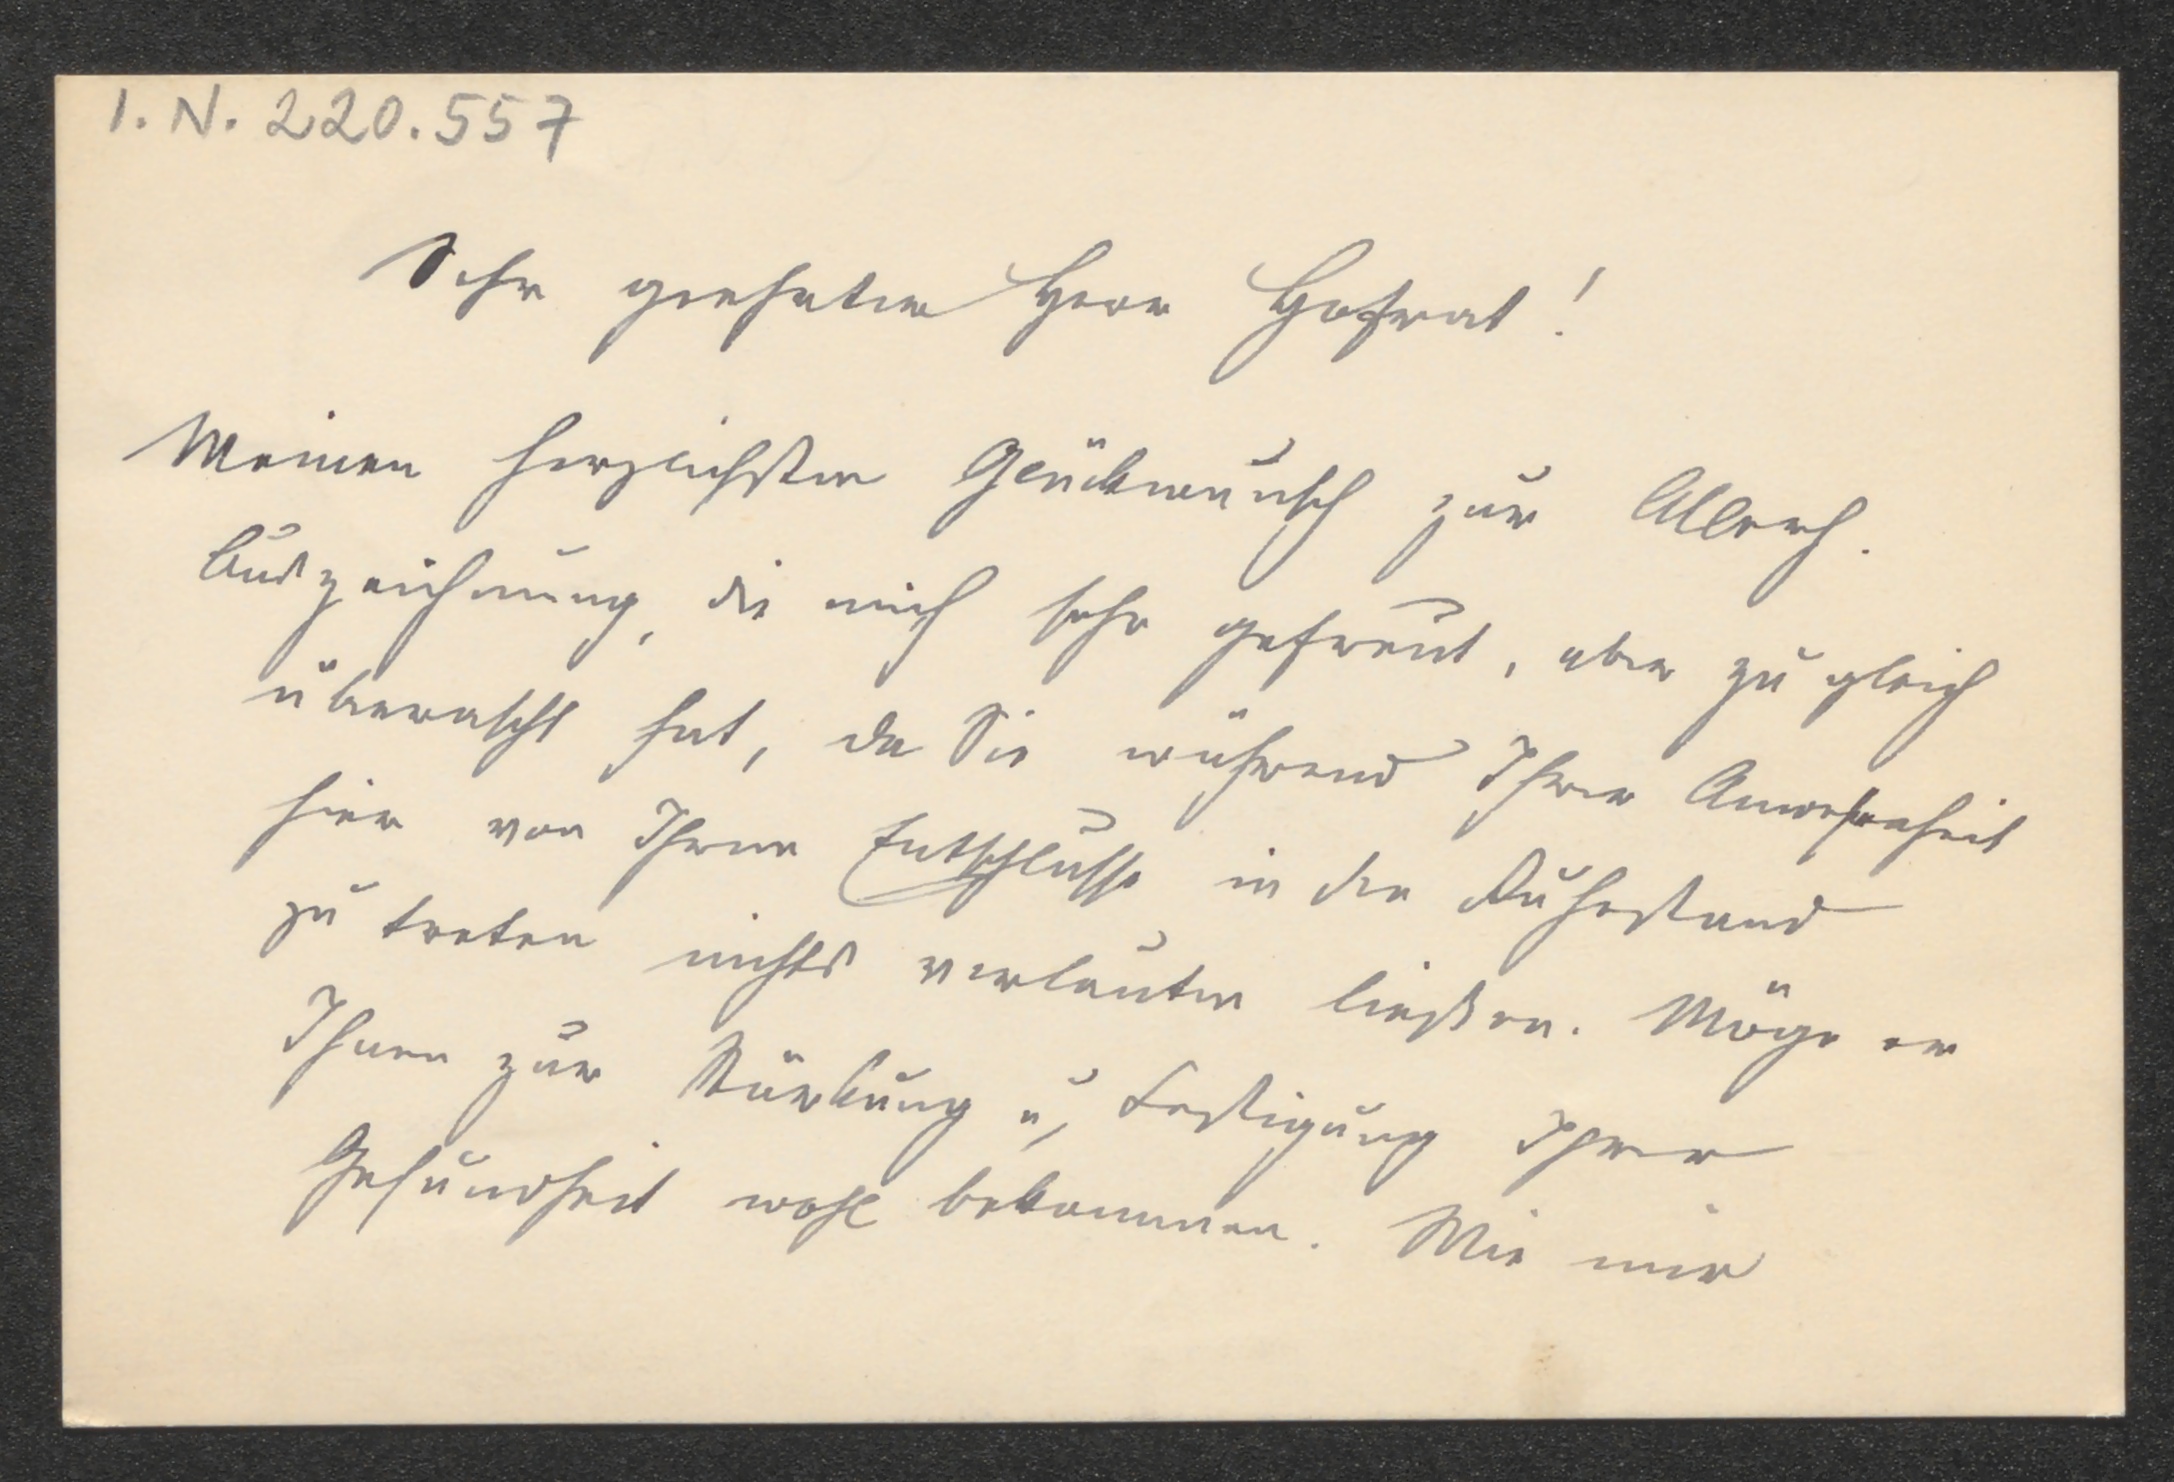 I. N. 220.557
Sehr geehrter Herr Hofrat!
Meinen herzlichsten Glückwunsch zur Allerh.
Auszeichnung, die mich sehr gefreut, aber zugleich
überrascht hat, da Sie während Ihrer Anwesenheit
hier von Ihrem Entschlusse in den Ruhestand
zu treten nichts verlauten ließen. Möge er
Ihnen zur Stärkung u, Festigung Ihrer
Gesundheit wohl bekommen. Wie mir